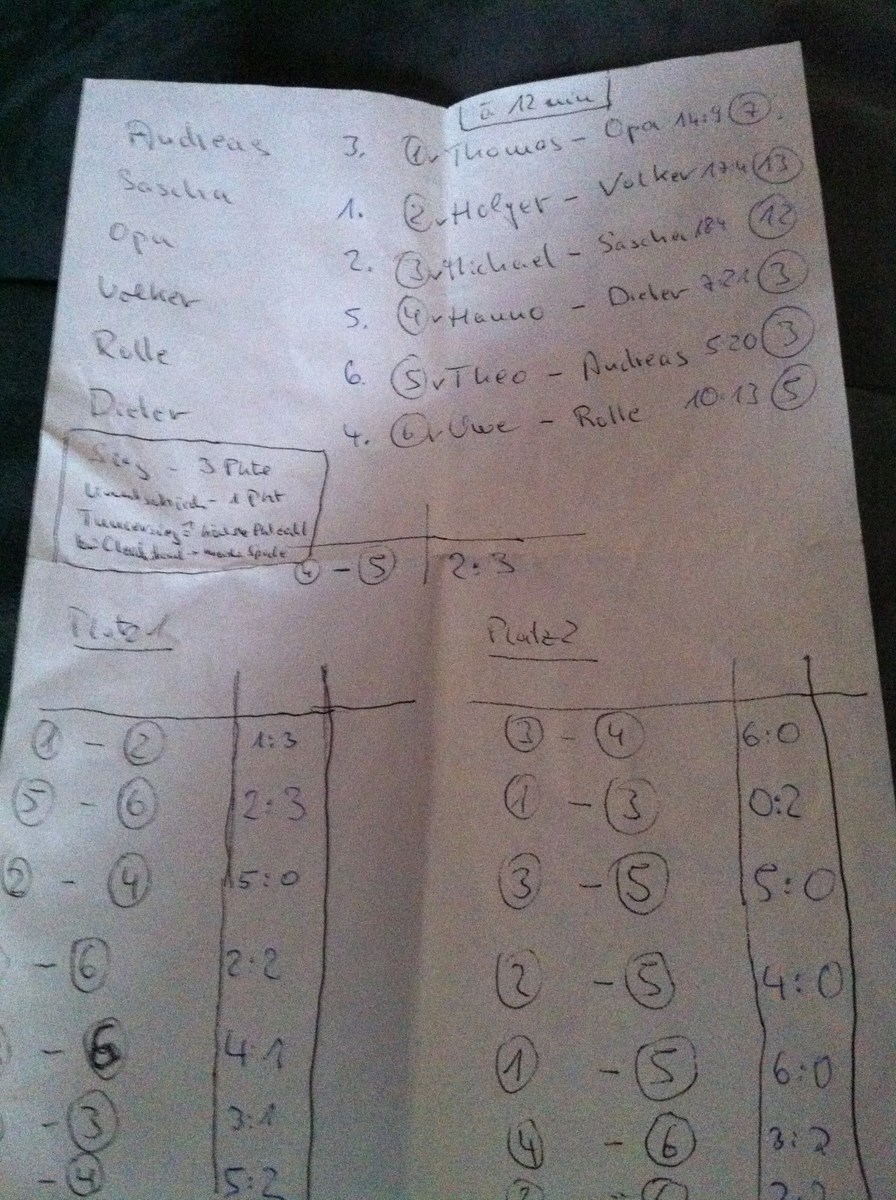 à 12 min
Andreas
Sascha
Opa
Volker
Rolle
Dieter
3. ① Thomas - Opa 14:9 ⑦
1. ② Holger - Volker 17:4 ⑬
2. ③ Michael - Sascha 18:4 ⑫
5. ④ Hanno - Dieter 7:21 ③
6. ⑤ Theo - Andreas 5:20 ③
4. ⑥ Uwe - Rolle 10:13 ⑤
Sieg - 3 Pkte
Unentschieden - 1 Pkt
Turniersieg = höchste Pktzahl
④ - ⑤ 2:3
Platz 1
① - ② 1:3
⑤ - ⑥ 2:3
② - ④ 5:0
- ⑥ 2:2
- ⑥ 4:1
- ③ 3:1
- ④ 5:2
Platz 2
③ - ④ 6:0
① - ③ 0:2
③ - ⑤ 5:0
② - ⑤ 4:0
① - ⑤ 6:0
④ - ⑥ 3:2